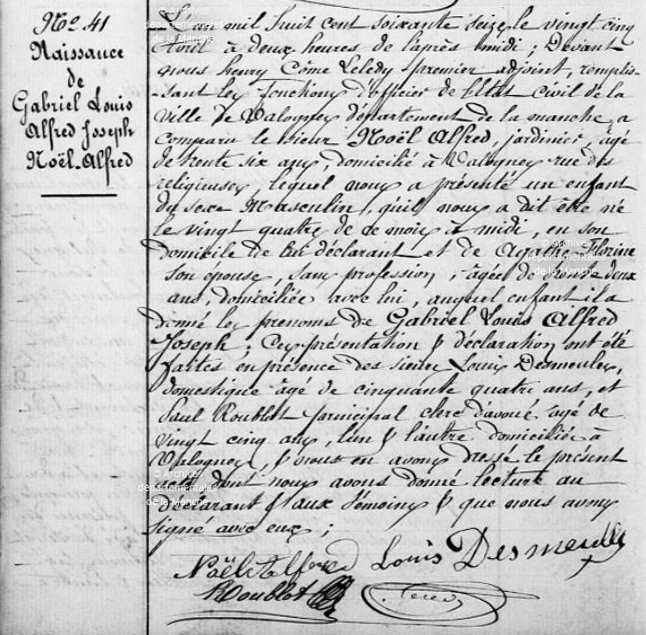 No 41
Naissance
de
Gabriel Louis
Alfred Joseph
Noël-Alfred
L'an mil huit cent soixante seize, le vingt cinq
avril à deux heures de l'après midi ; Devant
nous henry Côme Leledy premier adjoint, remplis-
-sant les fonctions d'officier de l'état civil de la
ville de Valognes département de la manche, a
comparu le sieur Noël Alfred, jardinier, âgé
de trente six ans, domicilié à Valognes rue des
religieuses, lequel nous a présenté un enfant
du sexe Masculin, qu'il nous a dit être né
le vingt quatre de ce mois à midi, en son
domicile de lui déclarant et de Agathe Florine
son épouse, sans profession, âgée de trente deux
ans, domiciliée avec lui, auquel enfant il a
donné les prenoms de Gabriel Louis Alfred
Joseph ; Ces présentation & déclaration ont été
faites en présence des sieurs Louis Desmeules,
domestique âgé de cinquante quatre ans, et
Paul Roublot principal clerc d'avoué âgé de
vingt cinq ans, l'un & l'autre domiciliés à
Valognes, & nous en avons dressé le présent
acte dont nous avons donné lecture au
déclarant & aux témoins & que nous avons
signé avec eux ;
Noël Alfred Louis Desmeules
Roublot
© Archives
départementales
de la Manche
© Archives
départementales
de la Manche
© Archives
départementales
de la Manche